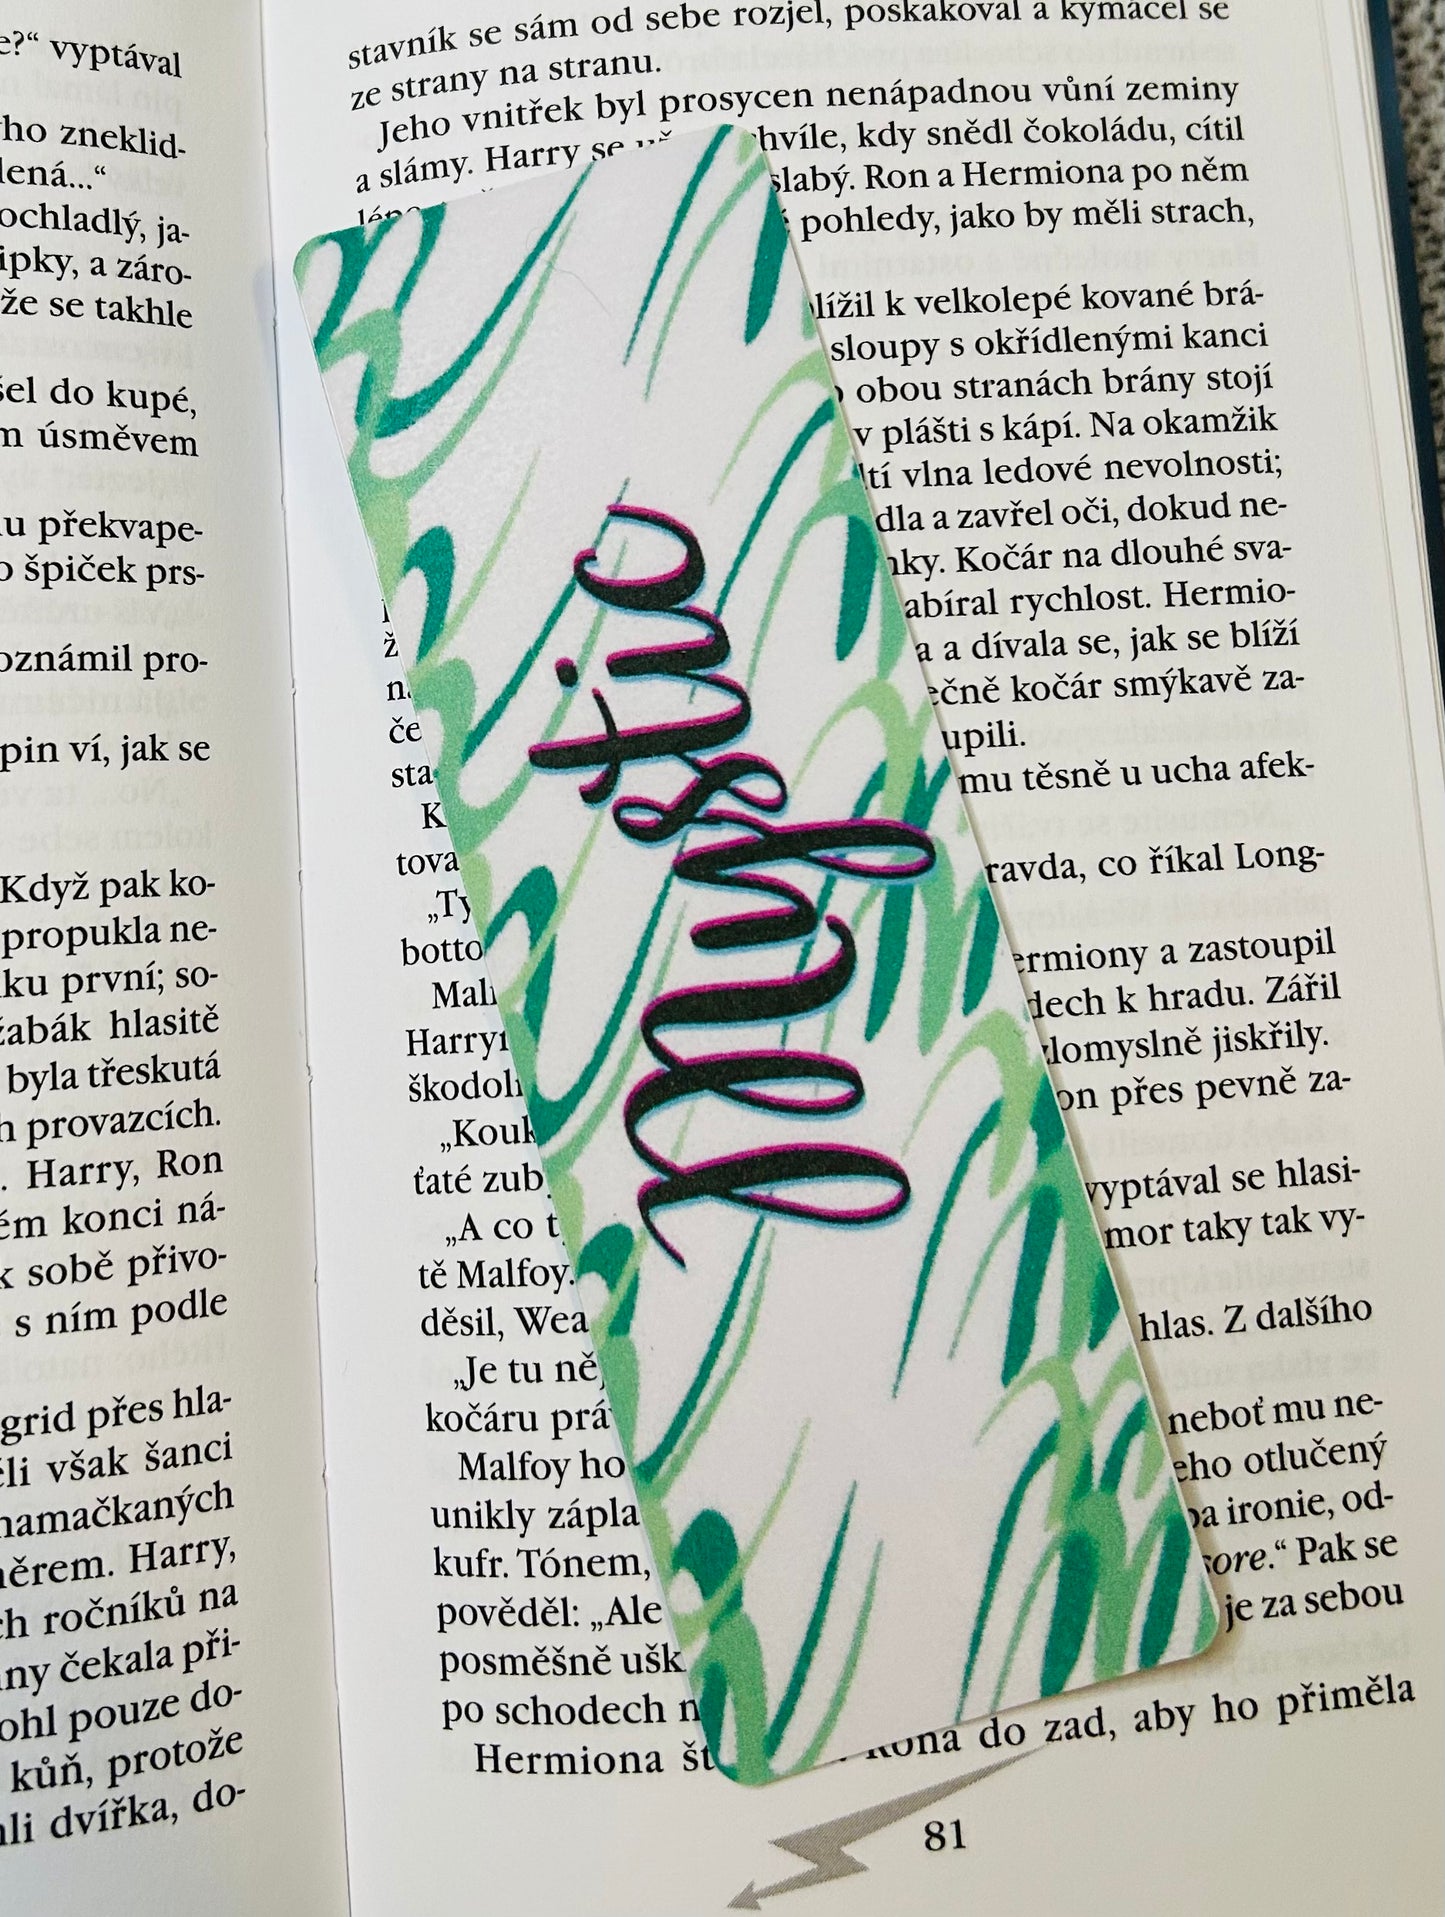 e?“ vyptával
ho zneklid-
lená...“
ochladlý, ja-
ipky, a záro-
že se takhle
šel do kupé,
m úsměvem
nu překvape-
o špiček prs-
oznámil pro-
pin ví, jak se
Když pak ko-
propukla ne-
ku první; so-
žabák hlasitě
byla třeskutá
h provazcích.
. Harry, Ron
ém konci ná-
k sobě přivo-
s ním podle
grid přes hla-
ěli však šanci
namačkaných
měrem. Harry,
ch ročníků na
ny čekala při-
ohl pouze do-
kůň, protože
li dvířka, do-
stavník se sám od sebe rozjel, poskakoval a kymácel se
ze strany na stranu.
Jeho vnitřek byl prosycen nenápadnou vůní zeminy
a slámy. Harry se chvíle, kdy snědl čokoládu, cítil
slabý. Ron a Hermiona po něm
pohledy, jako by měli strach,
lížil k velkolepé kované brá-
sloupy s okřídlenými kanci
obou stranách brány stojí
v plášti s kápí. Na okamžik
ltí vlna ledové nevolnosti;
dla a zavřel oči, dokud ne-
nky. Kočár na dlouhé sva-
abíral rychlost. Hermio-
ž a a dívala se, jak se blíží
ečně kočár smýkavě za-
če upili.
sta mu těsně u ucha afek-
K
tova ravda, co říkal Long-
„Ty
botto ermiony a zastoupil
Mal dech k hradu. Zářil
Harry zlomyslně jiskřily.
škodol on přes pevně za-
„Kouk
ťaté zub vyptával se hlasi-
„A co t mor taky tak vy-
tě Malfoy.
děsil, Wea hlas. Z dalšího
„Je tu ně
kočáru prá neboť mu ne-
Malfoy ho eho otlučený
unikly zápla ba ironie, od-
kufr. Tónem, sore.“ Pak se
pověděl: „Ale je za sebou
posměšně ušk
po schodech n
Hermiona št Rona do zad, aby ho přiměla
81
Mystic